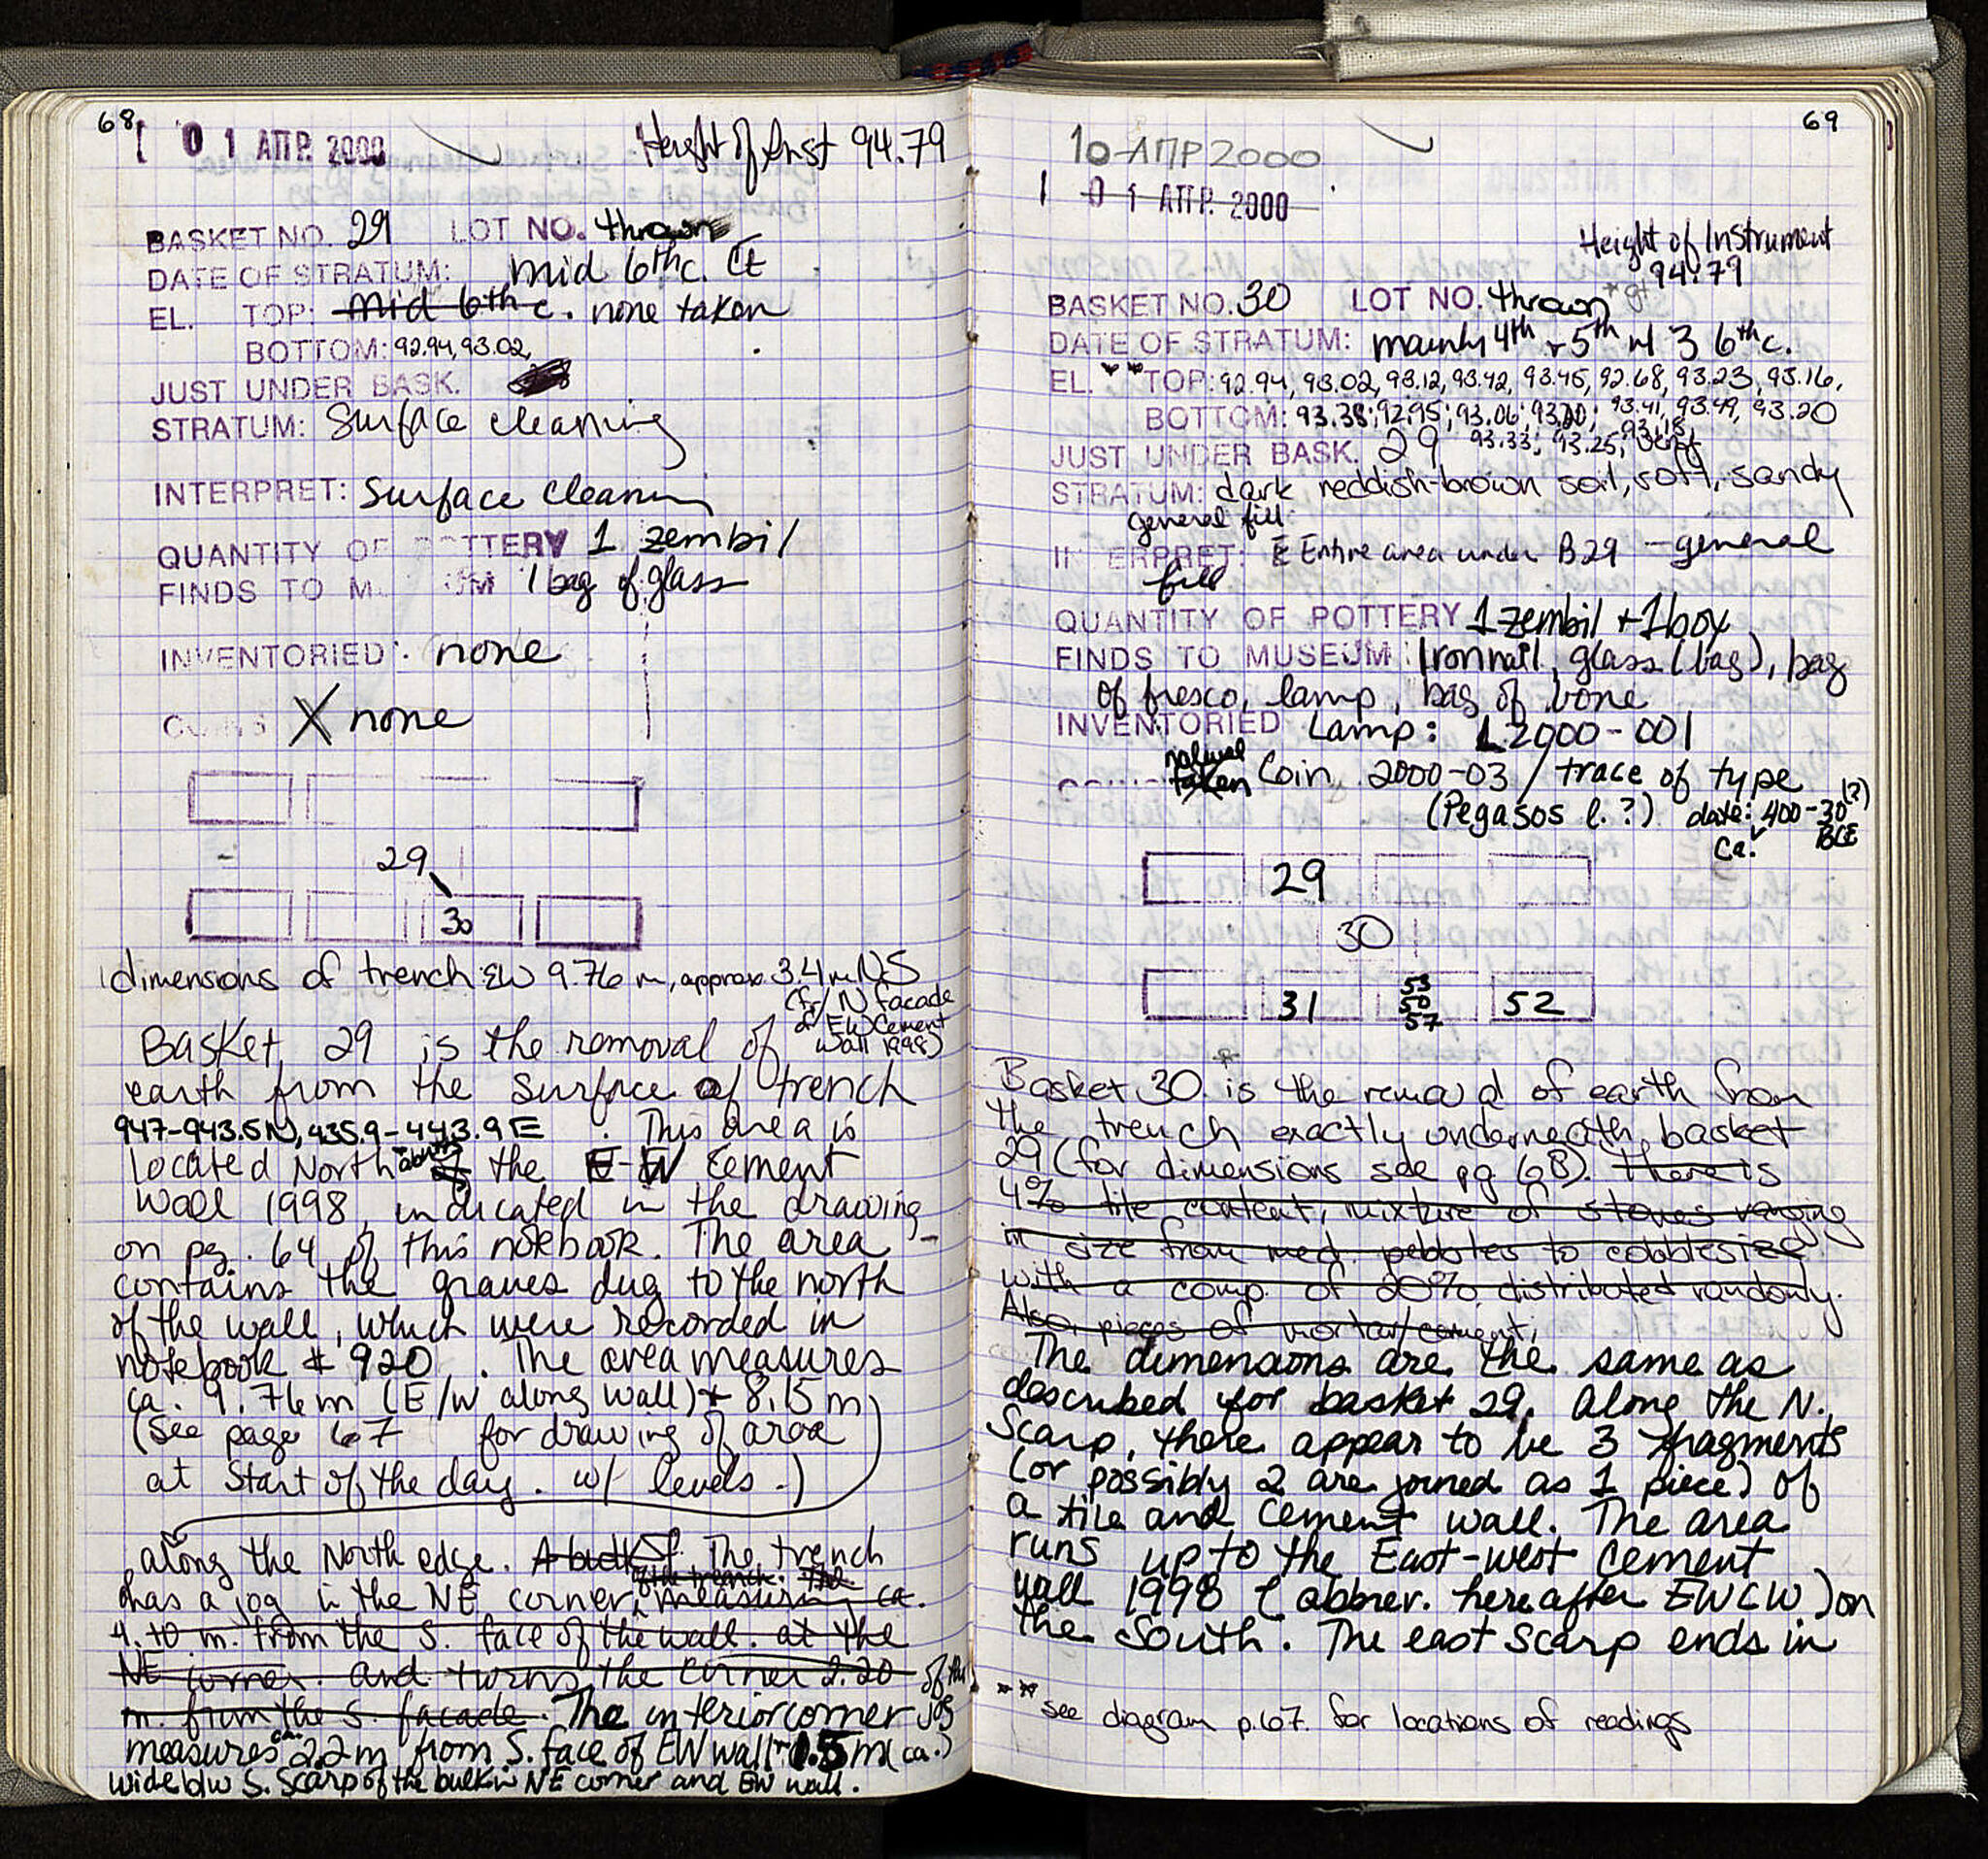 68
[ 0 1 ΑΠΡ. 2000
Height of Inst 94.79
BASKET NO. 29 LOT NO. thrown
DATE OF STRATUM: mid 6th c. CE
EL. TOP: mid 6th c. none taken
BOTTOM: 92.94, 93.02,
JUST UNDER BASK.
STRATUM: Surface cleaning
INTERPRET: Surface cleaning
QUANTITY OF POTTERY 1 zembil
FINDS TO M UM 1 bag of glass
INVENTORIED: none
COINS X none
29
30
dimensions of trench: EW 9.76 m, approx. 3.4 m. NS
(fr/ N facade
of EW Cement
wall 1998)
Basket 29 is the removal of
earth from the surface of trench
947-943.5N, 435.9-443.9E . This area is
located North of the E-W Cement
wall 1998, indicated in the drawing
on pg. 64 of this notebook. The area
contains the graves dug to the north
of the wall, which were recorded in
notebook # 920 . The area measures
ca. 9.76m (E/W along wall) + 8.15m
(See page 67 for drawing of area
at start of the day. w/ levels.)
along the North edge. The trench
has a jog in the NE corner, measuring ca.
4.10 m. from the S. face of the wall. at the
NE corner. and turns the corner 2.20
m. from the S. facade. The interior corner of the jog
measures ca. 2.2m from S. face of EW wall + 1.5m (ca.)
wide b/w S. Scarp of the bulk in NE corner and EW wall.
69
10-ΑΠΡ 2000
[ 0 1 ΑΠΡ. 2000
Height of Instrument
94.79
BASKET NO. 30 LOT NO. thrown
DATE OF STRATUM: mainly 4th + 5th w/ 3 6th c.
EL. ** TOP: 92.94, 93.02, 93.12, 93.42, 93.45, 92.68, 93.23, 93.16,
BOTTOM: 93.38; 92.95; 93.06; 93.20; 93.41, 93.49, 93.20
93.18,
JUST UNDER BASK. 29 93.33; 93.25;
STRATUM: dark reddish-brown soil, soft, sandy
general fill.
INTERPRET: Entire area under B29 - general
fill
QUANTITY OF POTTERY 1 zembil + 1 box
FINDS TO MUSEUM: Iron nail, glass (bag), bag
of fresco, lamp, bag of bone
INVENTORIED Lamp: L2000-001
taken Coin 2000-03 / trace of type
(Pegasos l. ?) date: 400-30 (?)
ca. BCE
29
30
31 53 52
50
57
Basket 30 is the removal of earth from
the trench exactly underneath basket
29 (for dimensions see pg 68). There is
4% tile content, mixture of stones varying
in size from med. pebbles to cobblesize
with a comp. of 20% distributed randomly.
Also, pieces of mortar/cement,
The dimensions are the same as
described for basket 29. Along the N.
Scarp, there appear to be 3 fragments
(or possibly 2 are joined as 1 piece) of
a tile and cement wall. The area
runs up to the East-west cement
wall 1998 (abbrev. hereafter EWCW) on
the South. The east scarp ends in
** see diagram p.67. for locations of readings